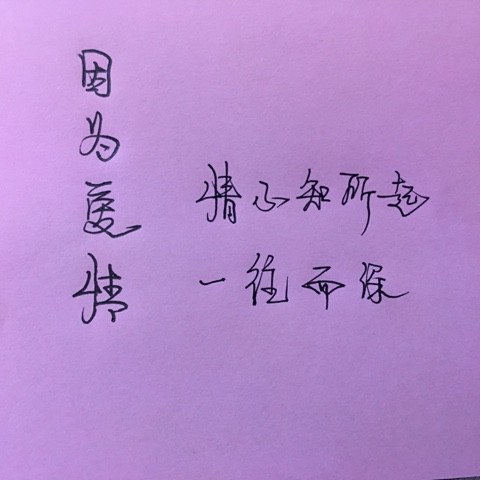 因为爱情
情不知所起
一往而深